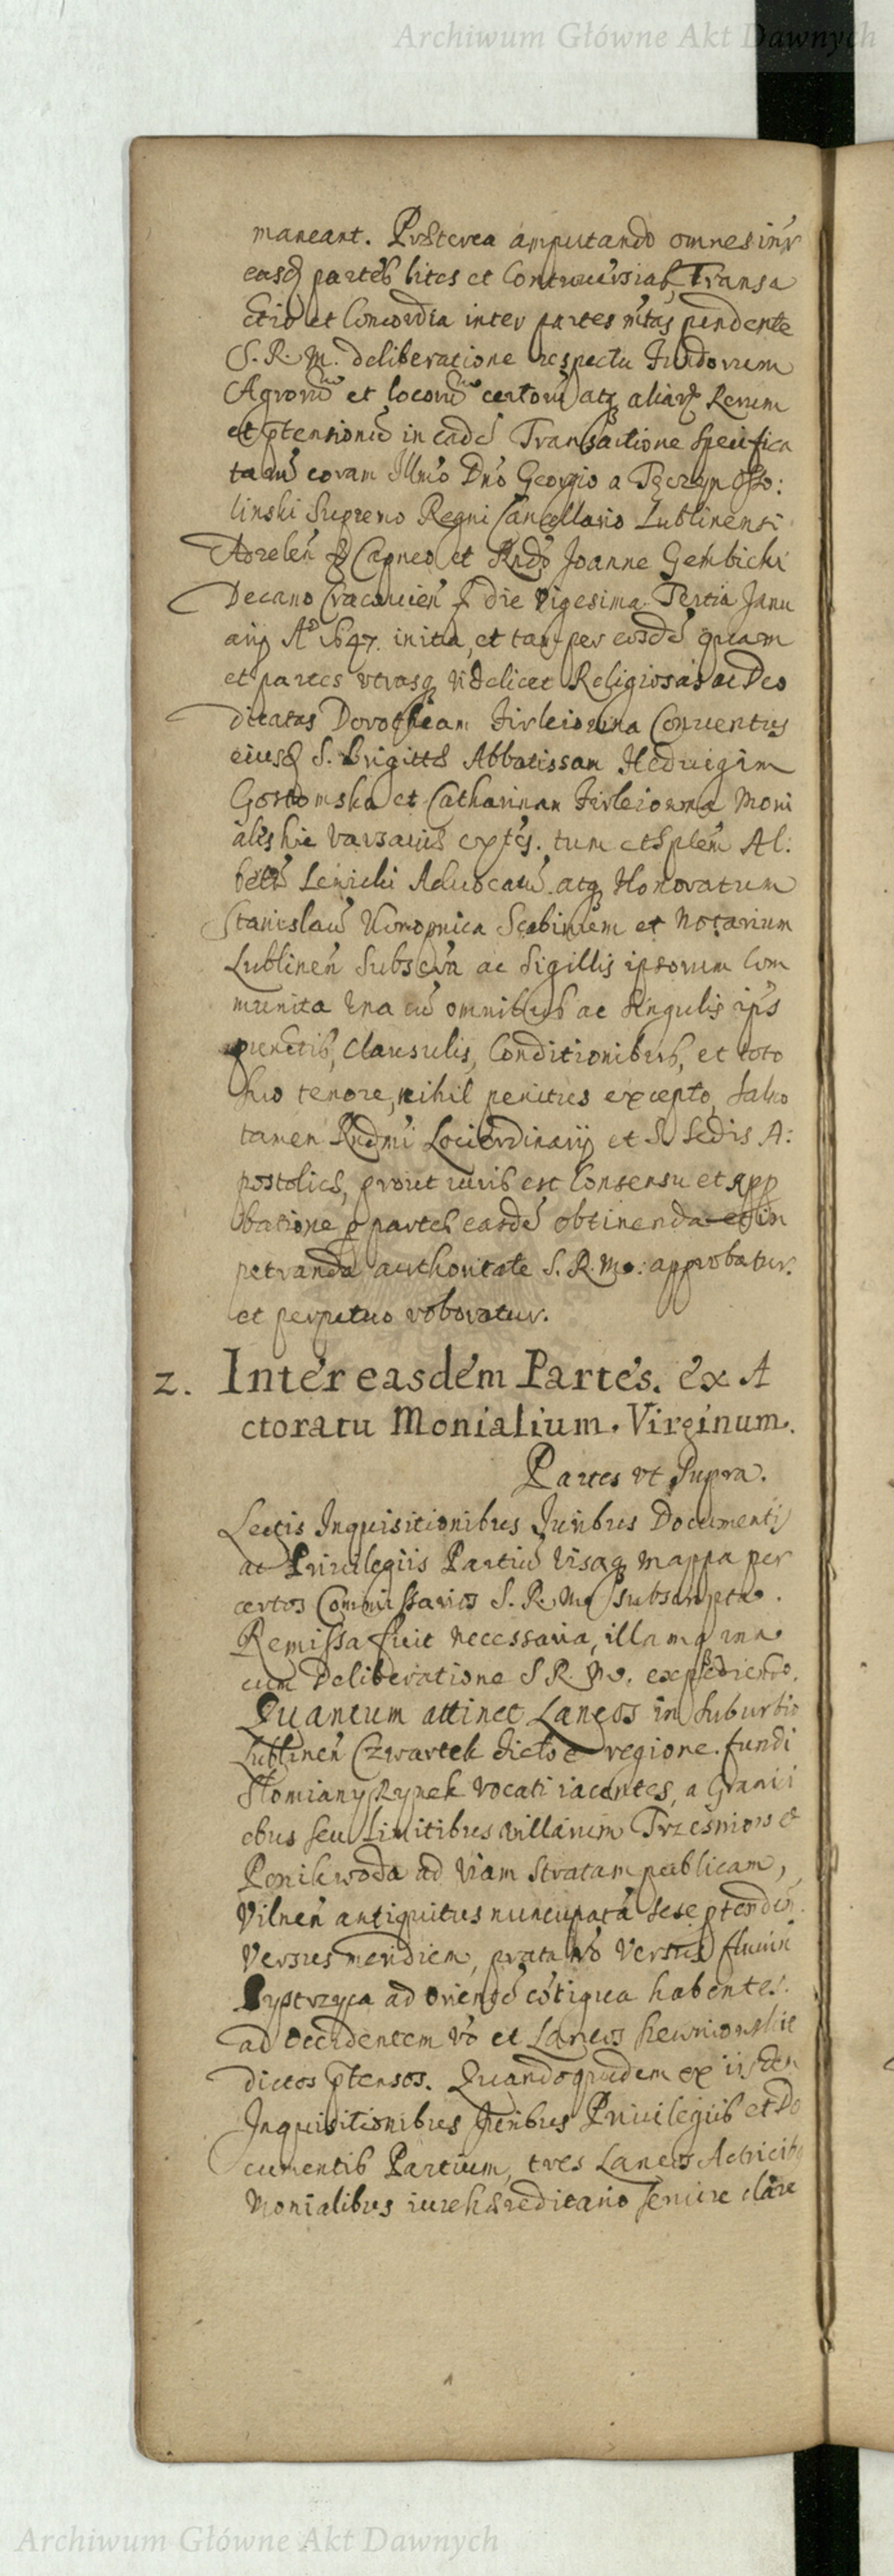 Archiwum Główne Akt Dawnych
maneant. Præterea amputando omnes intr
easdq partes lites et Controversias, Transa
ctio et Concordia inter partes nrtas pendente
S. R. M. deliberatione respectu fundorum
Agrorũ et locorũ certorũ atq aliarũ Rerum
et ptensionũ in eadẽ Transactione specifica
tarũ coram Illmo Dno Georgio a Tęczyn Osso:
linski Supremo Regni Cancellario Lublinensi
Decano Cracovien die Vigesima Tertia Janu
arij Aº 1647. inita, et tam per eosdẽ quam
et partes utrasq videlicet Religiosas ac Deo
dicatas Dorotheam Firleiowna Conventus
eiusd S. Brigittæ Abbatissam Heduigim
Gostomska et Catharinam Firleiowna Moni
ales hic Varsaviæ extes. tum et Splem Al:
bertũ Lenicki Advocatũ atq Honoratum
Stanislaũ Konopnica Scabinum et Notarium
Lublinen Subscrip ac Sigillis ipsorum Com
munita una cũ omnibus ac singulis ips
punctis, Clausulis, Conditionibus, et toto
suo tenore, nihil penitus excepto, salvo
tamen Rndmi Loci Ordinarij et S. Sedis A:
postolicæ, prout iuris est Consensu et app
batione p partes easdẽ obtinenda et im
petranda authoritate S. R. M.: approbatur.
et perpetuo roboratur.
2. Inter easdem Partes. ex A
ctoratu Monialium. Virginum.
Partes ut Supra.
Lectis Inquisitionibus Juribus Documentis
ac Privilegiis Partiũ visaq mappa per
certos Commissarios S. R. M. subscripta.
Remissa fuit necessaria, illamq una
cum Deliberatione S R. M. expediendo.
Quantum attinet Laneos in suburbio
Lublinen Czwartek dicto e regione. fundi
Słomiany Rynek vocati iacentes, a Granici
ebus seu limitibus villarum Trzesniow et
Ponikwoda ad viam stratam publicam,
Vilnen antiquitus nuncupatã sese ptenden
versus meridiem, prata vo versus fluvin
Bystrzyca ad orientẽ cõtigua habentes.
ad Occidentem vo et Laneos
dictos ptensos. Quandoquidem ex iisdem
Inquisitionibus Juribus Privilegiis et Do
cumentis Partium, tres Laneos Actricibq
Monialibus iure hæreditario servire clare
Archiwum Główne Akt Dawnych